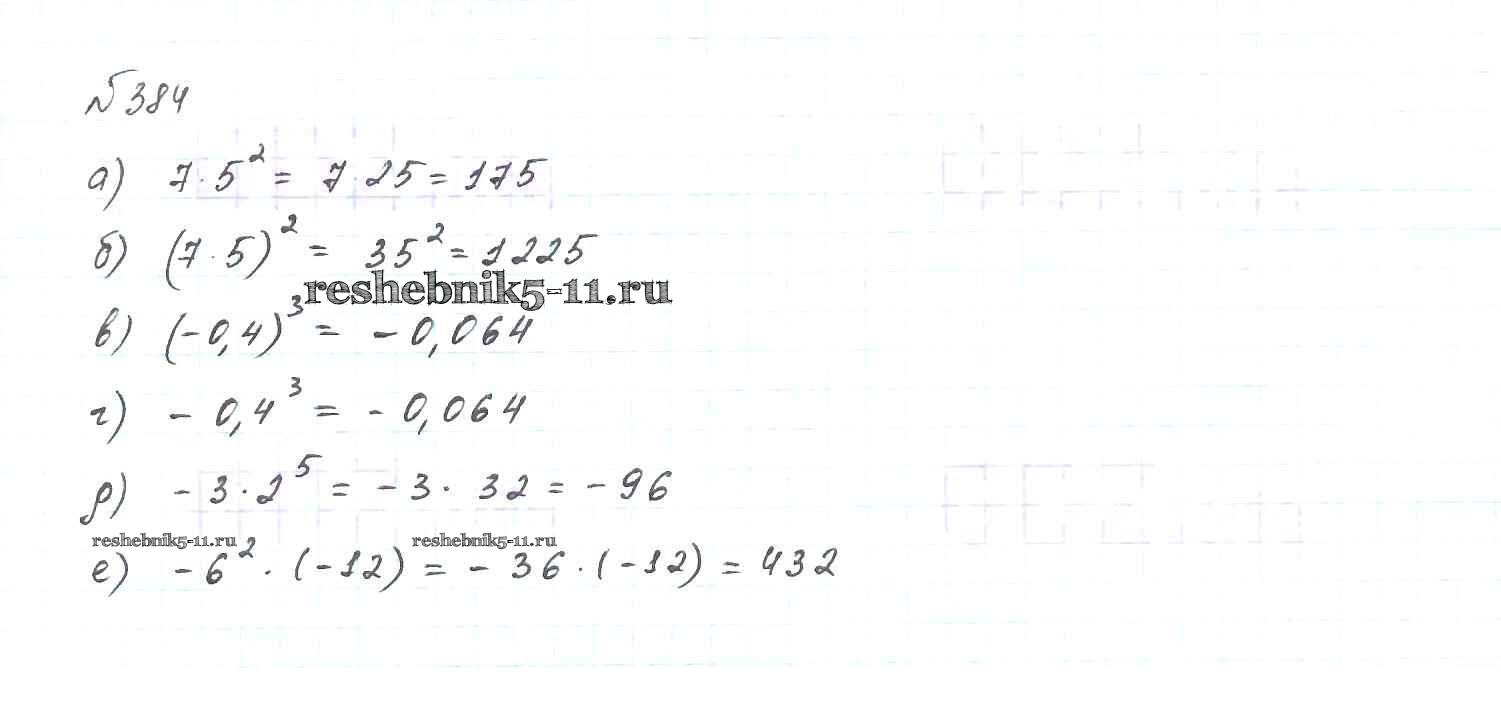 №384
а) 7·5² = 7·25 = 175
б) (7·5)² = 35² = 1225
reshebnik5-11.ru
в) (-0,4)³ = -0,064
г) -0,4³ = -0,064
д) -3·2⁵ = -3·32 = -96
reshebnik5-11.ru reshebnik5-11.ru
е) -6²·(-12) = -36·(-12) = 432